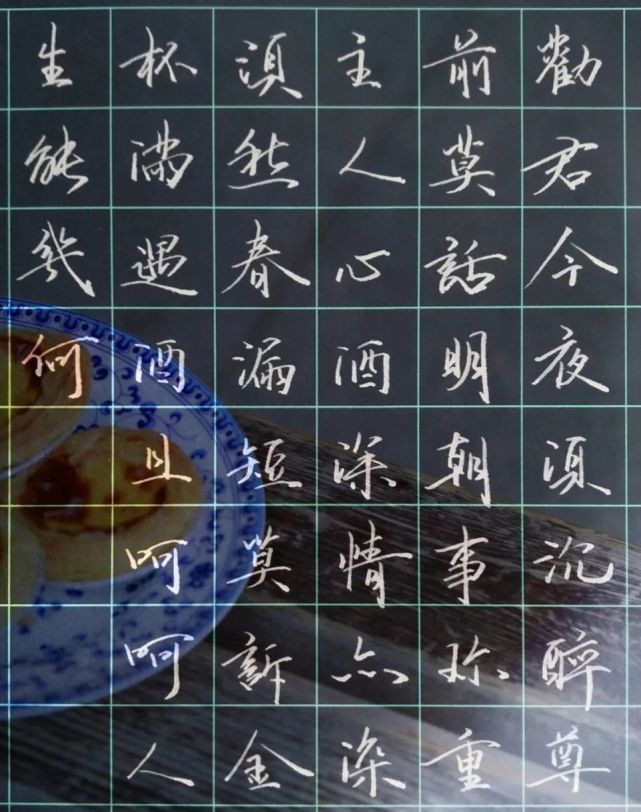 勸君今夜須沉醉尊
前莫話明朝事珍重
主人心酒深情亦深
須愁春漏短莫訴金
杯滿遇酒且呵呵人
生能幾何